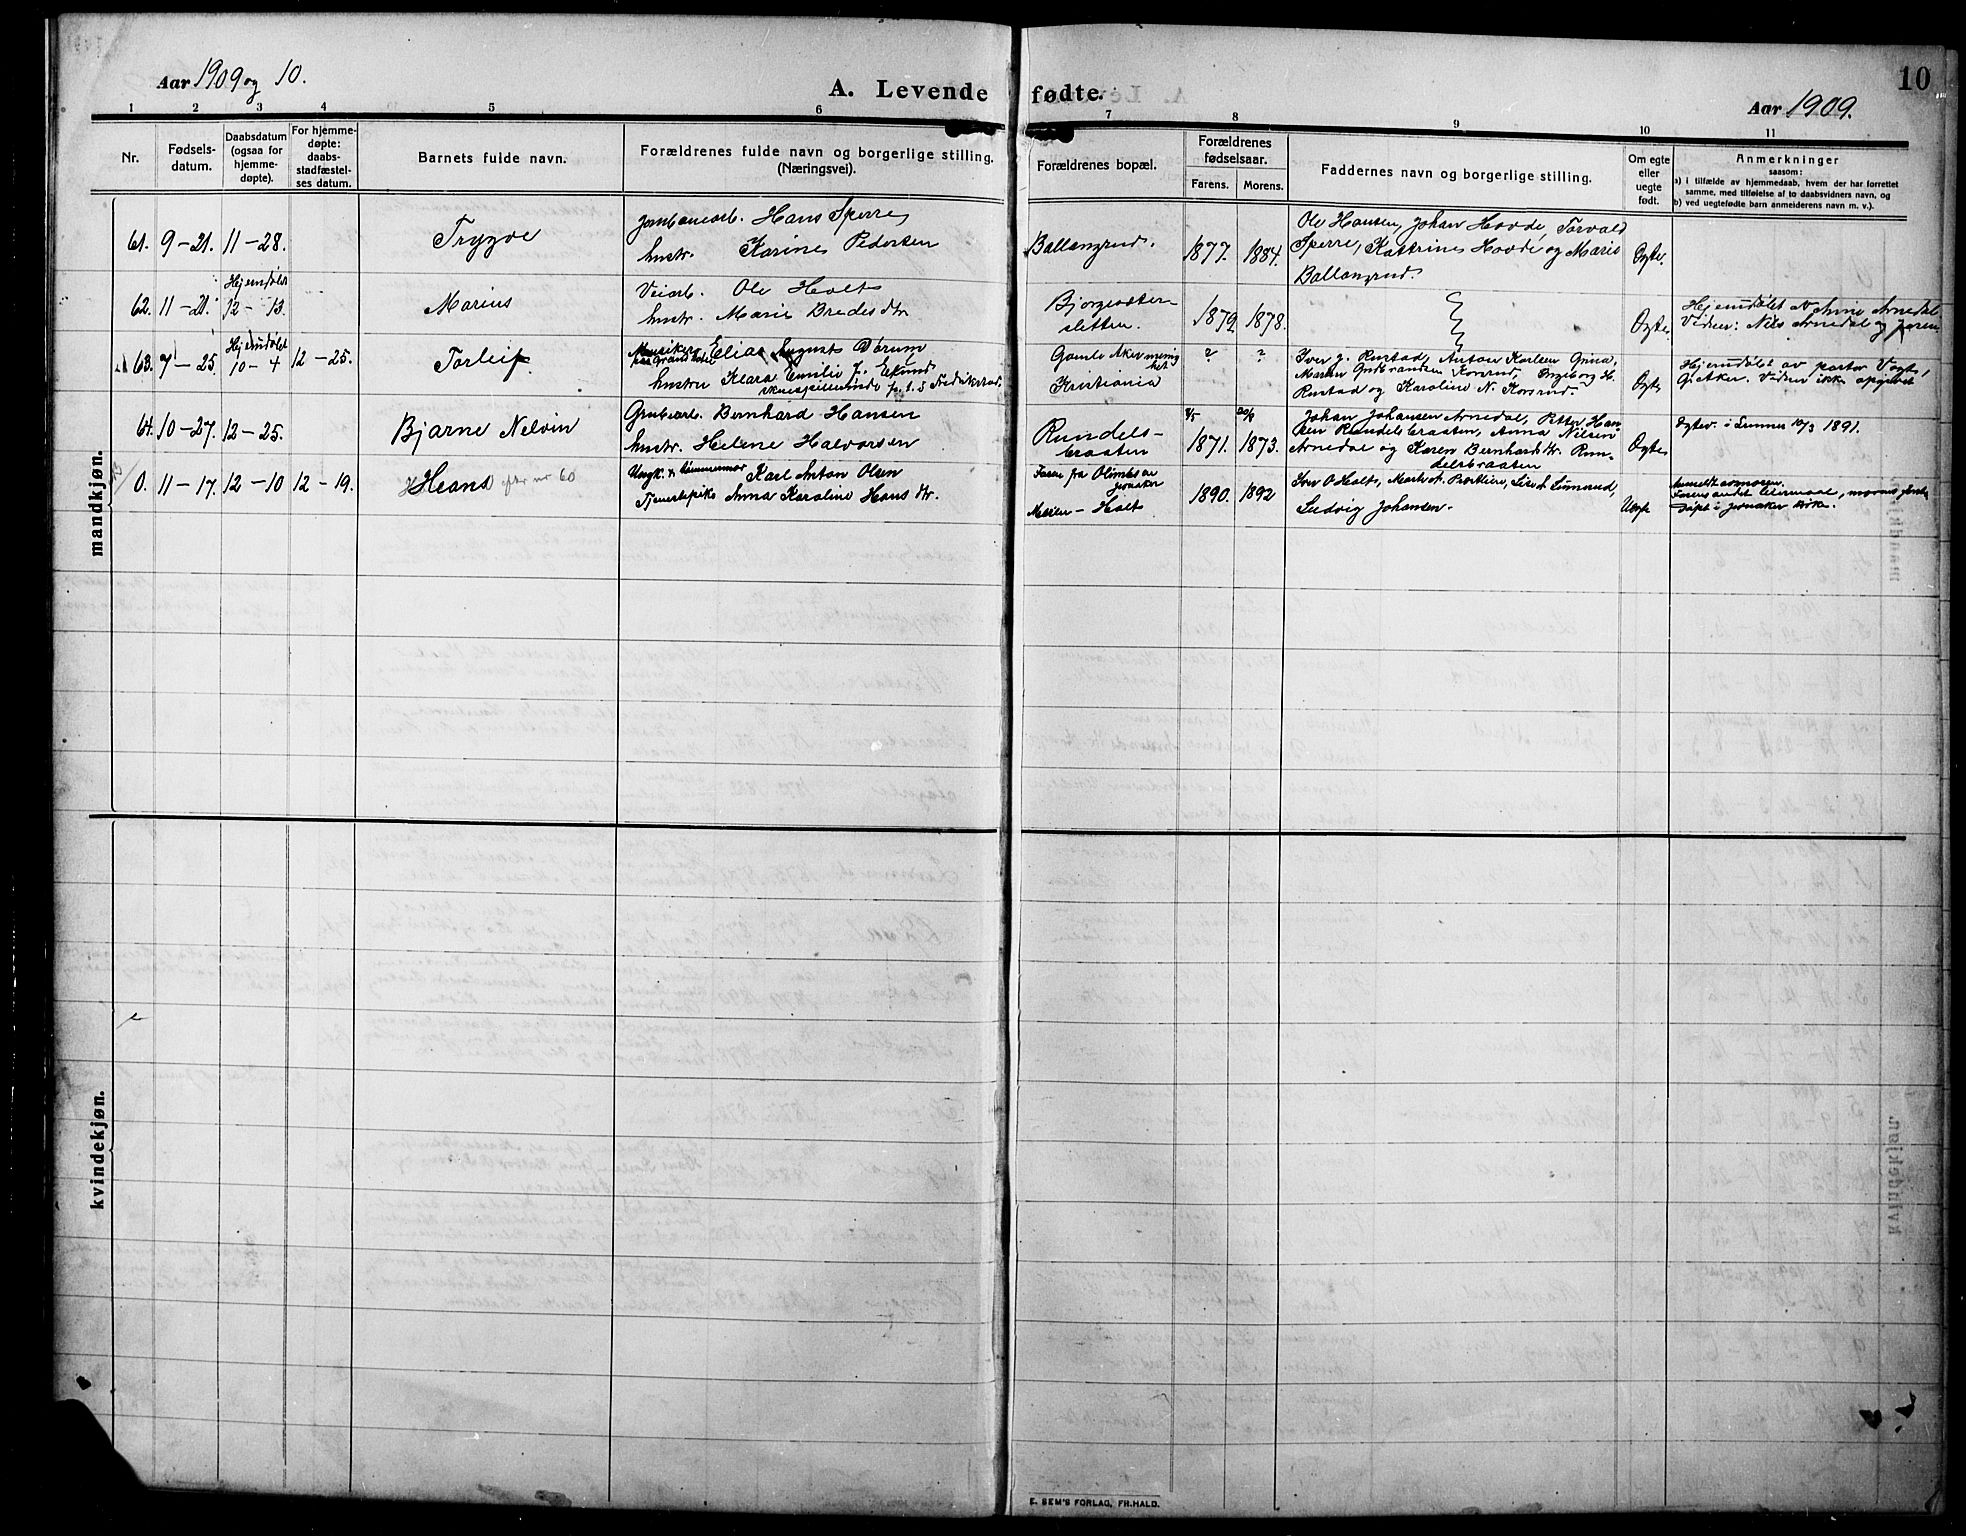 Aar 1909 og 10.
A. Levende fødte.
10
Aar 1909.
1 2 3 4 5 6 7 8 9 10 11
Nr.
Fødsels-
datum.
Daabsdatum
(ogsaa for
hjemme-
døpte).
For hjemme-
døpte:
daabs-
stadfæstel-
ses datum.
Barnets fulde navn.
Forældrenes fulde navn og borgerlige stilling.
(Næringsvei).
Forældrenes bopæl.
Forældrenes
fødselsaar.
Farens. Morens.
Faddernes navn og borgerlige stilling.
Om egte
eller
uegte
født.
Anmerkninger
saasom:
a) i tilfælde av hjemmedaab, hvem der har forrettet
samme, med tilføielse af to daabsvidners navn, og
b) ved uegtefødte barn anmelderens navn m. v.).
mandkjøn.
61. 9-21. 11-28.
Trygve
Jernbanearb. Hans Sperre
hustr. Karine Pedersen
Ballangrud.
1877. 1884.
Ole Hansen, Johan Hovde, Torvald
Sperre, Kattrine Hovde og Marie
Ballangrud.
Egte.
62. 11-21.
Hjemdøbt
12-13.
Marius
Veiarb. Ole Holt
hustr. Marie Bredesdtr.
Bjørgesæter-
sletten.
1879. 1878.
Egte.
Hjemdøbt av Anne Arnedal
Vidner: Nils Arnedal og faren
63. 7-25.
Hjemdøbt
10-4
12-25.
Torleif
Musiker Elias August Dørum
paa Grand Hotel
hustru Klara Emilie J. Eklund
skuespillerinde p.t. i Fredrikstad
Gamle Aker menig
het
Kristiania
? ?
Iver J. Rustad, Anton Karlsen Grina,
Marten Gulbrandsen Korsrud, Ingeborg H.
Rustad og Karoline N. Korsrud.
Egte
Hjemdøbt av pastor Vogt,
Gl. Aker. Vidner ikke opgivet
64. 10-27. 12-25.
Bjarne Nelvin
Grubearb. Bernhard Hansen
hustr. Helene Halvorsen
Rundels-
braaten
1871. 1873.
Johan Johansen Arnedal, Petter Han-
sen Rundelsbraaten, Anna Nilsen
Arnedal og Karen Bernhardsdtr. Run-
delsbraaten
Egte
Egtev. i Lunner 10/3 1891.
0. 11-17. 12-10 12-19.
Hans efter nr 60
Ungk. & tømmermand Karl Anton Olsen
Tjenestepike Anna Karoline Hansdtr.
Faren fra Olimbsæ
Jevnaker
Moren - Holt
1890. 1892
Iver O Holt, Ludvig Johansen.
Uegte
Farens andet leiermaal, morens første
Døpt i Jevnaker kirke.
kvindekjøn.
E. SEM'S FORLAG, FR.HALD.